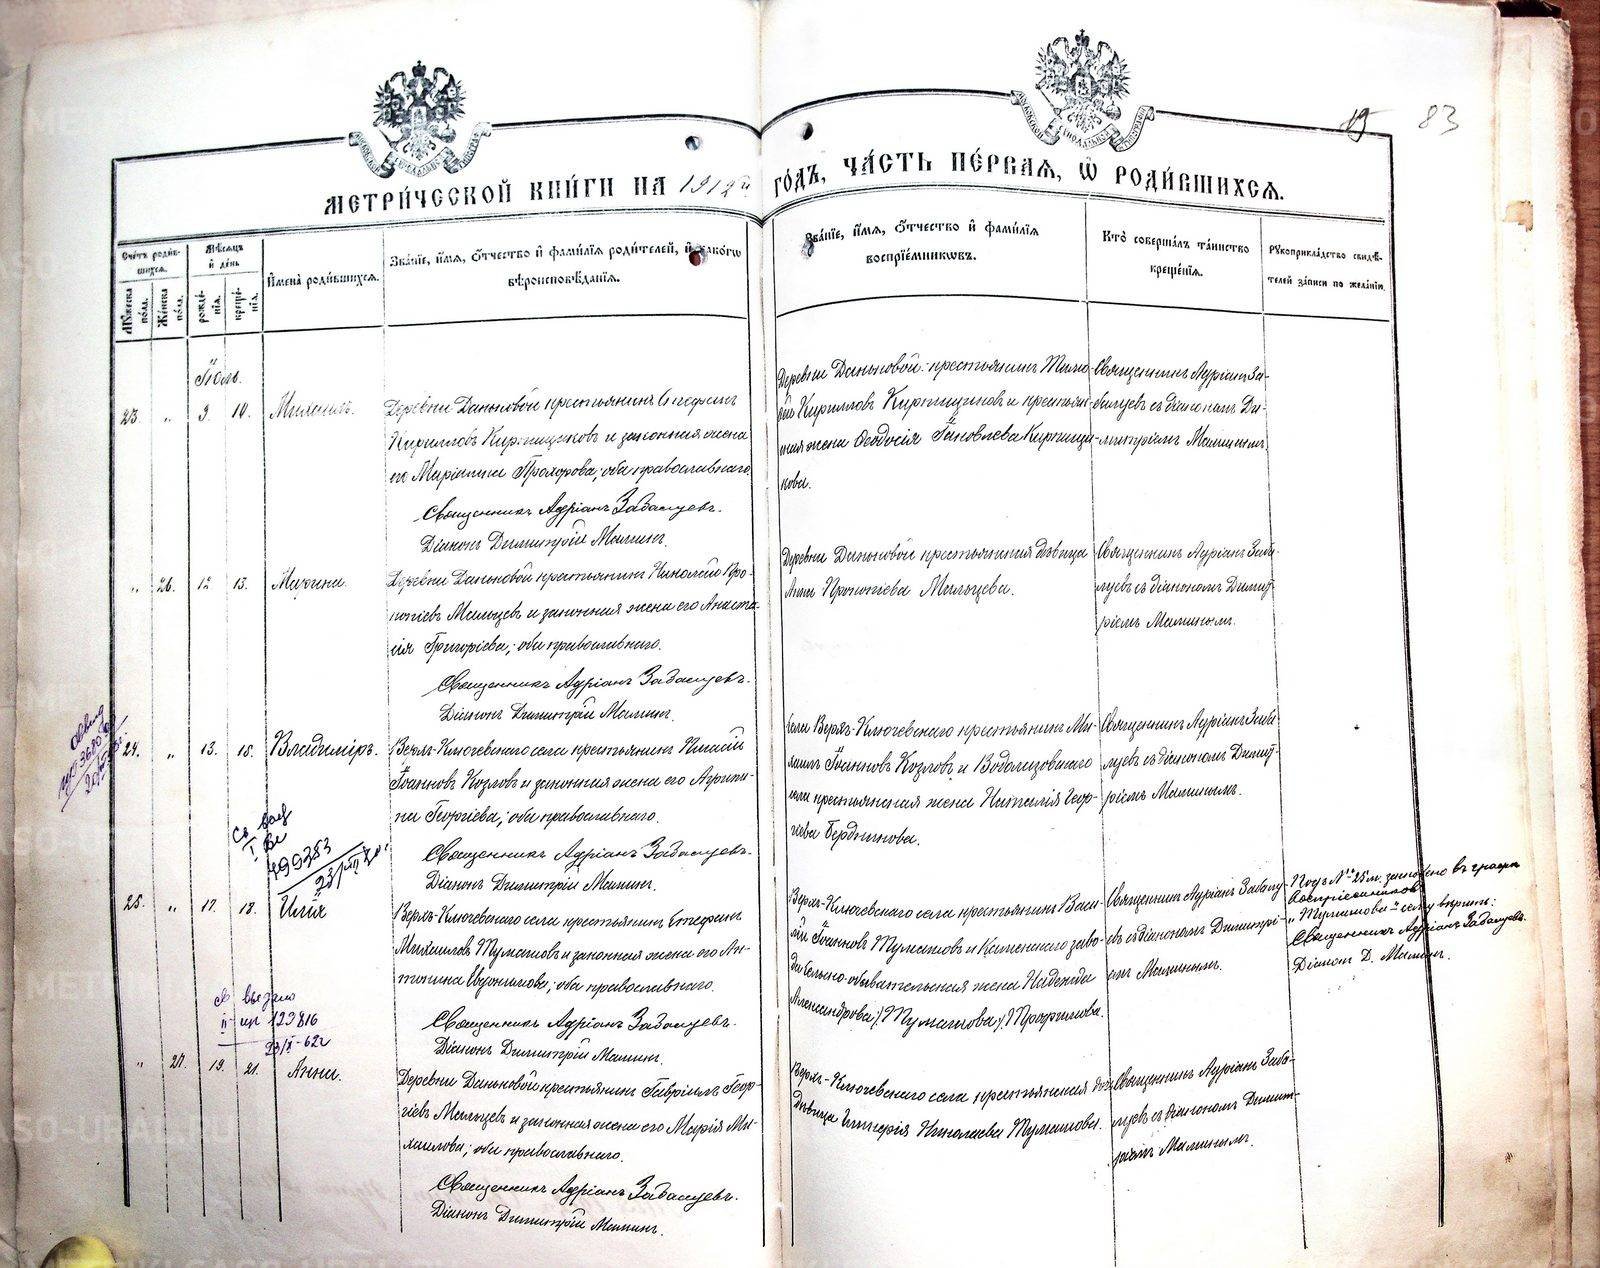 83
МЕТРИ́ЧЕСКОЙ КНИ́ГИ НА 1912й ГО́ДЪ, ЧА́СТЬ ПЕ́РВАЯ, Ѡ РОДИ́ВШИХСЯ.
Сче́тъ роди́в-
шихся.
Му́жеска по́ла.
Же́нска по́ла.
Мѣ́сяцъ и де́нь
рожде́нія.
креще́нія.
Имена̀ роди́вшихся.
Зва́ніе, и́мя, о́тчество и фами́лія роди́телей, и како́гѡ
вѣроисповѣ́данія.
Зва́ніе, и́мя, о́тчество и фами́лія
воспріе́мникѡвъ.
Кто̀ соверша́лъ та́инство
креще́нія.
Рукоприкла́дство свидѣ́-
телей за́писи по жела́нію.
Іюль.
23. " 9. 10. Михаилъ.
Деревни Даньковой крестьянинъ Стефанъ
Кирилловъ Кирпищиковъ и законная жена
его Маріамна Прохорова, оба православнаго.
Священникъ Адріанъ Забалуевъ.
Діаконъ Димитрій Маминъ.
Деревни Даньковой крестьянинъ Тимо-
фей Кирилловъ Кирпищиковъ и крестьян-
ская жена Ѳеодосія Іаковлева Кирпищи-
кова.
Священникъ Адріанъ За-
балуевъ съ діакономъ Ди-
митріемъ Маминымъ.
" 26. 12. 13. Марина.
Деревни Даньковой крестьянинъ Николай Про-
копіевъ Мальцевъ и законная жена его Анаста-
сія Григоріева, оба православнаго.
Священникъ Адріанъ Забалуевъ.
Діаконъ Димитрій Маминъ.
Деревни Даньковой крестьянская дѣвица
Анна Прокопіева Мальцева.
Священникъ Адріанъ Заба-
луевъ съ діакономъ Димит-
ріемъ Маминымъ.
24. " 13. 15. Владиміръ.
Верхъ-Ключевскаго села крестьянинъ
Іоанновъ Козловъ и законная жена его Агрипи-
на Георгіева, оба православнаго.
Священникъ Адріанъ Забалуевъ.
Діаконъ Димитрій Маминъ.
села Верхъ-Ключевскаго крестьянинъ Ми-
хаилъ Іоанновъ Козловъ и
села крестьянская жена Наталія Геор-
гіева Бердникова.
Священникъ Адріанъ Заба-
луевъ съ діакономъ Димит-
ріемъ Маминымъ.
499353
25. " 17. 18. Илія
Верхъ-Ключевскаго села крестьянинъ Стефанъ
Михаиловъ Тумашовъ и законная жена его Ан-
тонина, оба православнаго.
Священникъ Адріанъ Забалуевъ.
Діаконъ Димитрій Маминъ.
Верхъ-Ключевскаго села крестьянинъ Васи-
лій Іоанновъ Тумашовъ и Каменскаго заво-
да сельско-обывательская жена Надежда
Александрова /Тумашова/ Трофимова.
Священникъ Адріанъ Забалу-
евъ съ діакономъ Димитрі-
емъ Маминымъ.
Подъ № 25 м. записано въ графѣ
Воспріемниковъ
"Тумашова" сему вѣрить:
Священникъ Адріанъ Забалуевъ.
Діаконъ Д. Маминъ.
Св. выдано
II 123816
23/X-62г
" 27. 19. 21. Анна.
Деревни Даньковой крестьянинъ Гавріилъ Геор-
гіевъ Мальцевъ и законная жена его Марія Ми-
хаилова, оба православнаго.
Священникъ Адріанъ Забалуевъ.
Діаконъ Димитрій Маминъ.
Верхъ-Ключевскаго села крестьянская
дѣвица Николаева Тумашова.
Священникъ Адріанъ Заба-
луевъ съ діакономъ Димит-
ріемъ Маминымъ.